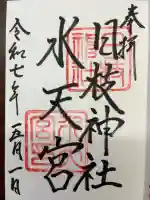 奉拝
日枝神社
水天宮
令和七年五月一日